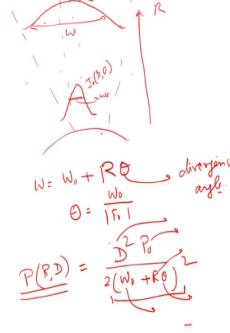 R
w
I₀(R,0)
w₀
W = W₀ + Rθ → divergence angle.
θ = W₀ / |F₀|
P(R,D) = D² P₀ / 2(W₀ + Rθ)²